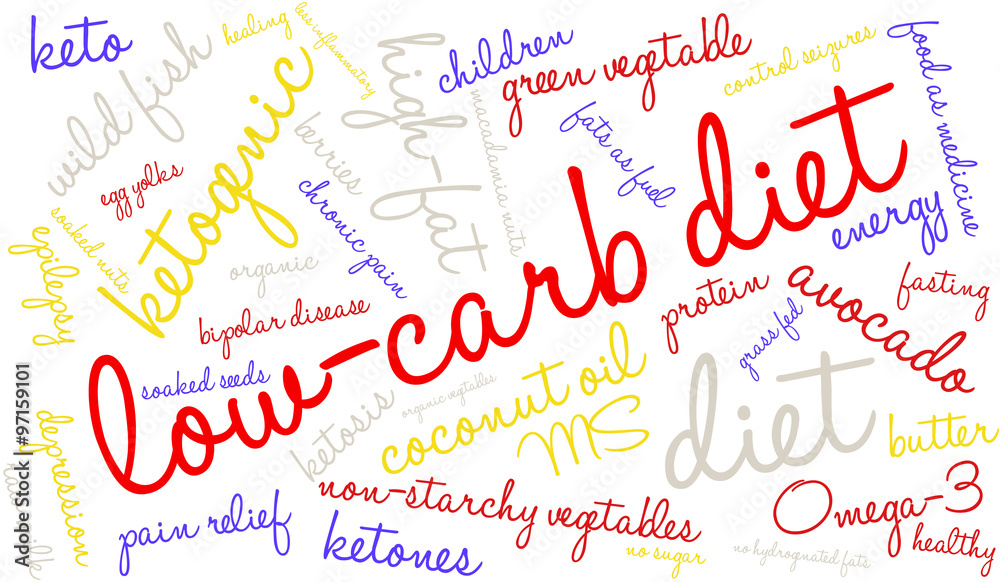 keto
wild fish
healing
less inflammatory
high-fat
children
green vegetable
control seizures
food as medicine
ketogenic
egg yolks
berries
macadamia nuts
fats as fuel
low-carb diet
soaked nuts
epilepsy
organic
chronic pain
energy
bipolar disease
protein
avocado
fasting
grass fed
soaked seeds
ketosis
organic vegetables
coconut oil
MS
diet
butter
depression
non-starchy vegetables
Omega-3
pain relief
ketones
no sugar
no hydrogenated fats
healthy
Adobe Stock | #97159101